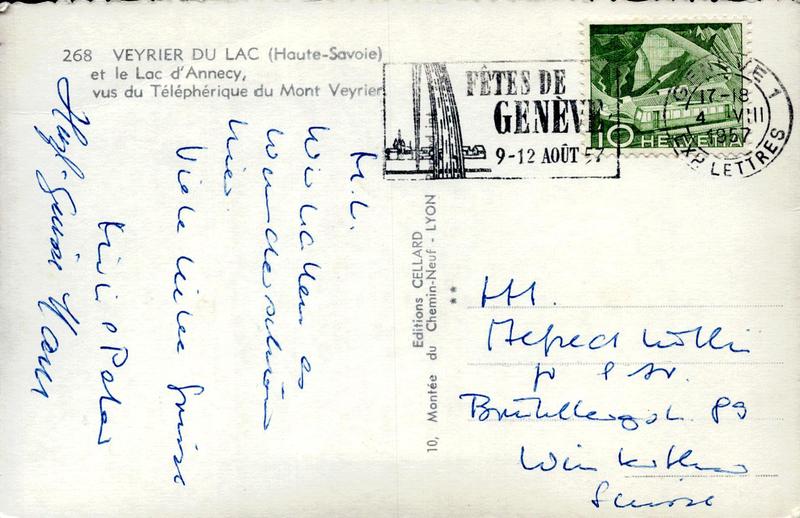 268 VEYRIER DU LAC (Haute-Savoie)
et le Lac d'Annecy,
vus du Téléphérique du Mont Veyrier
FÊTES DE
GENÈVE
9-12 AOÛT 57
GENÈVE 1
17-18
4 VIII
1957
EXP. LETTRES
10 HELVETIA
M. L.
Wir haben es
wunderschön
hier.
Viele liebe Grüsse
Peter
Herzl. Grüsse
Editions CELLARD
10, Montée du Chemin-Neuf - LYON
**
HH.
Alfred
Brühlbergstr. 89
Winterthur
Suisse